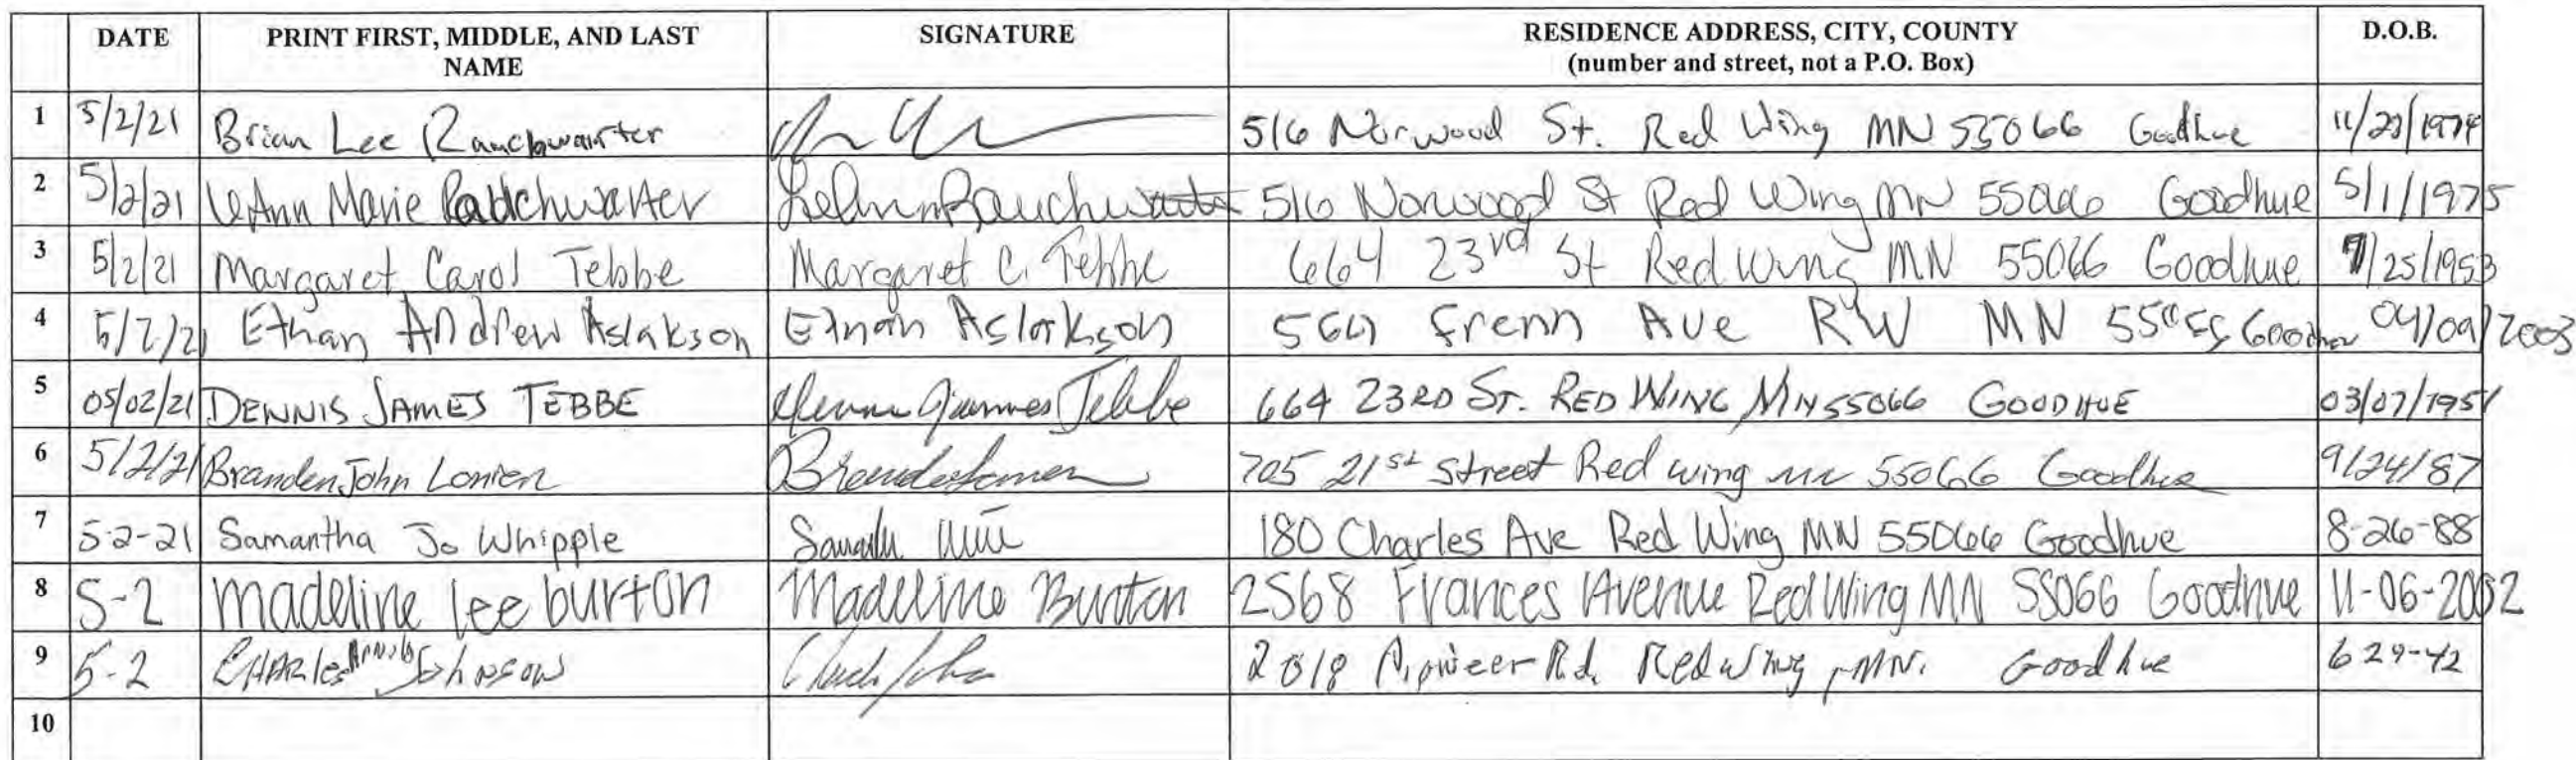 DATE PRINT FIRST, MIDDLE, AND LAST NAME SIGNATURE RESIDENCE ADDRESS, CITY, COUNTY (number and street, not a P.O. Box) D.O.B.
1 5/2/21 Brian Lee 516 Norwood St. Red Wing MN 55066 Goodhue 11/23/1974
2 5/2/21 LeAnn Marie LeAnn Rauchwarter 516 Norwood St Red Wing MN 55066 Goodhue 5/1/1975
3 5/2/21 Margaret Carol Tebbe Margaret C. Tebbe 664 23rd St Red Wing MN 55066 Goodhue /25/1953
4 5/2/21 Ethan Andrew Aslakson Ethan Aslakson Ave RW MN 04/09/2003
5 05/02/21 DENNIS JAMES TEBBE Dennis James Tebbe 664 23RD ST. RED WING MN 55066 GOODHUE 03/07/1951
6 5/2/21 Branden John Lonien 705 21st Street Red wing mn 55066 Goodhue 9/24/87
7 5-2-21 Samantha Jo Whipple 180 Charles Ave Red Wing MN 55066 Goodhue 8-26-88
8 5-2 madeline lee burton Madeline Burton 2568 Frances Avenue Red Wing MN 55066 Goodhue 11-06-2002
9 5-2 CHARles Arnold Johnson Pioneer Rd. Red wing, MN. Goodhue 6 29-42
10